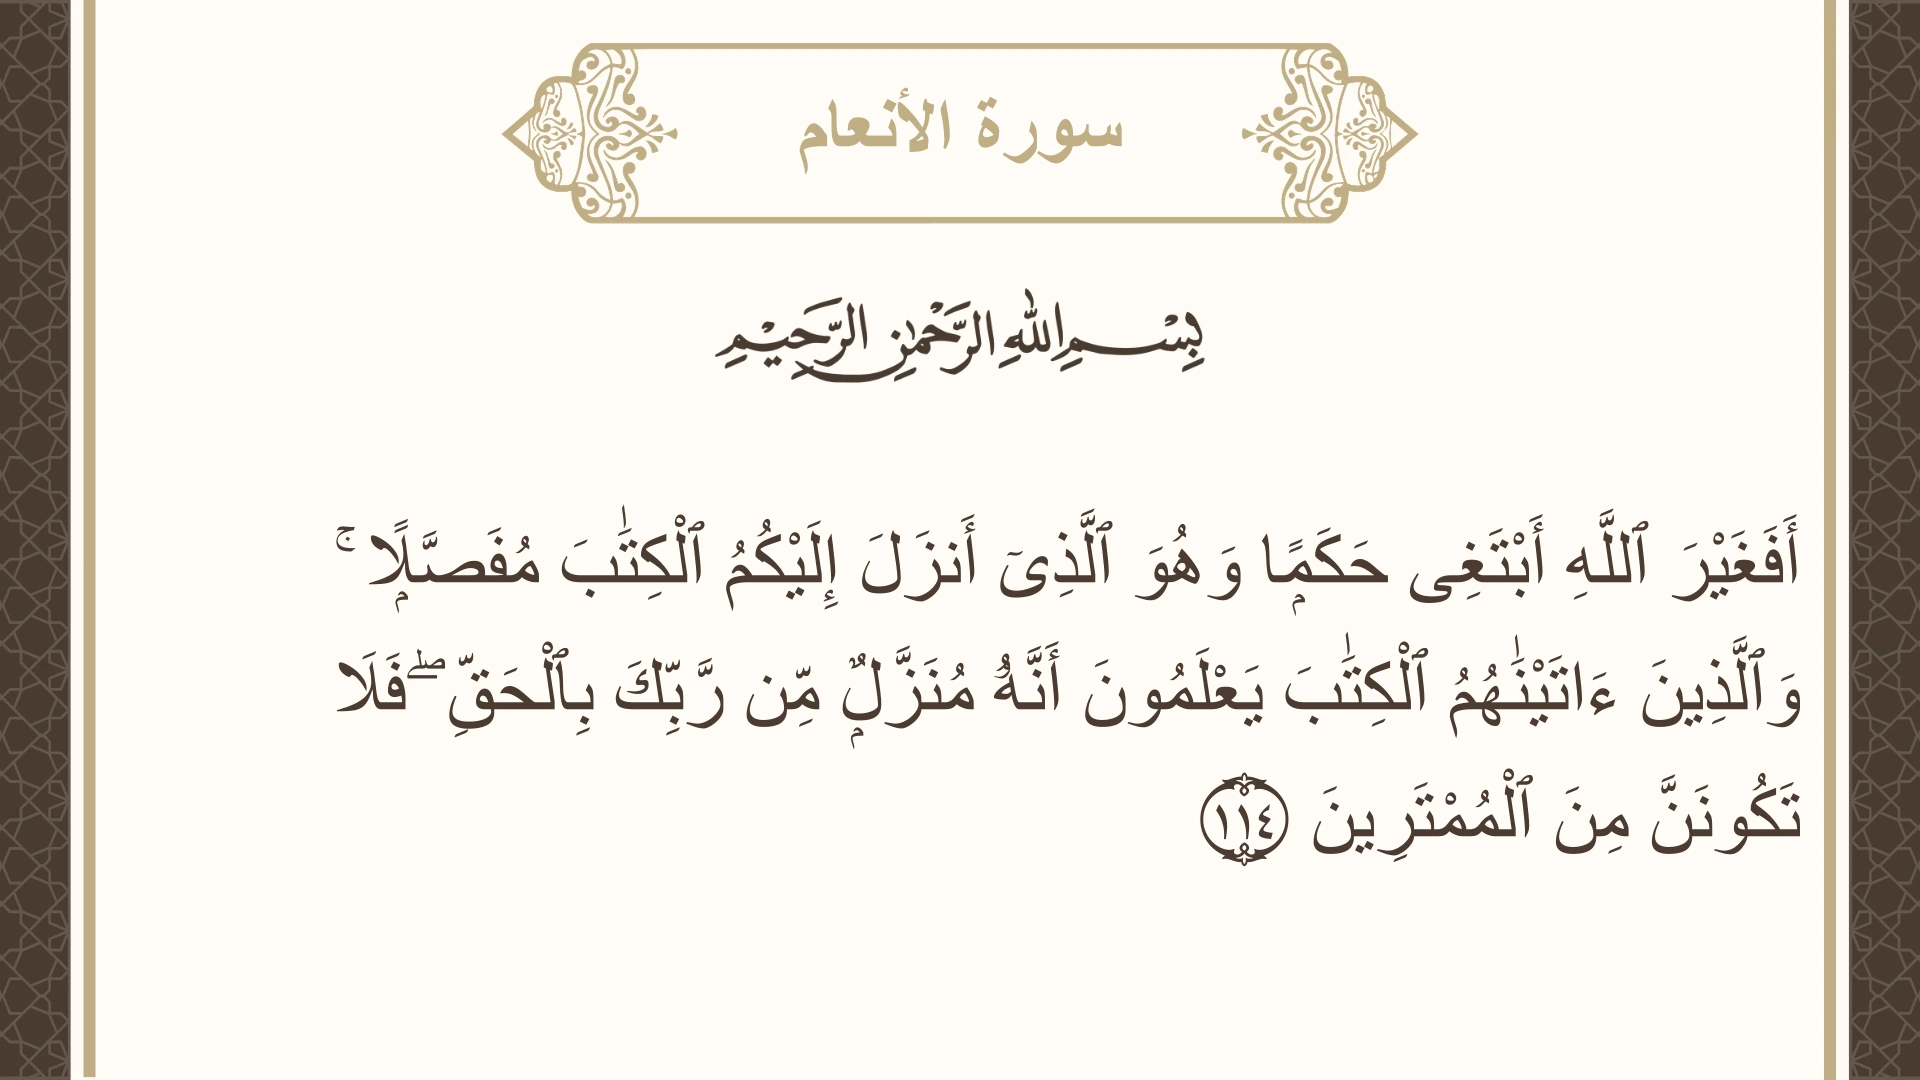 سورة الأنعام
بِسْمِ اللهِ الرَّحْمٰنِ الرَّحِيْمِ
أَفَغَيْرَ ٱللَّهِ أَبْتَغِى حَكَمًۭا وَهُوَ ٱلَّذِىٓ أَنزَلَ إِلَيْكُمُ ٱلْكِتَٰبَ مُفَصَّلًۭا ۚ
وَٱلَّذِينَ ءَاتَيْنَٰهُمُ ٱلْكِتَٰبَ يَعْلَمُونَ أَنَّهُۥ مُنَزَّلٌۭ مِّن رَّبِّكَ بِٱلْحَقِّ ۖ فَلَا
تَكُونَنَّ مِنَ ٱلْمُمْتَرِينَ ١١٤